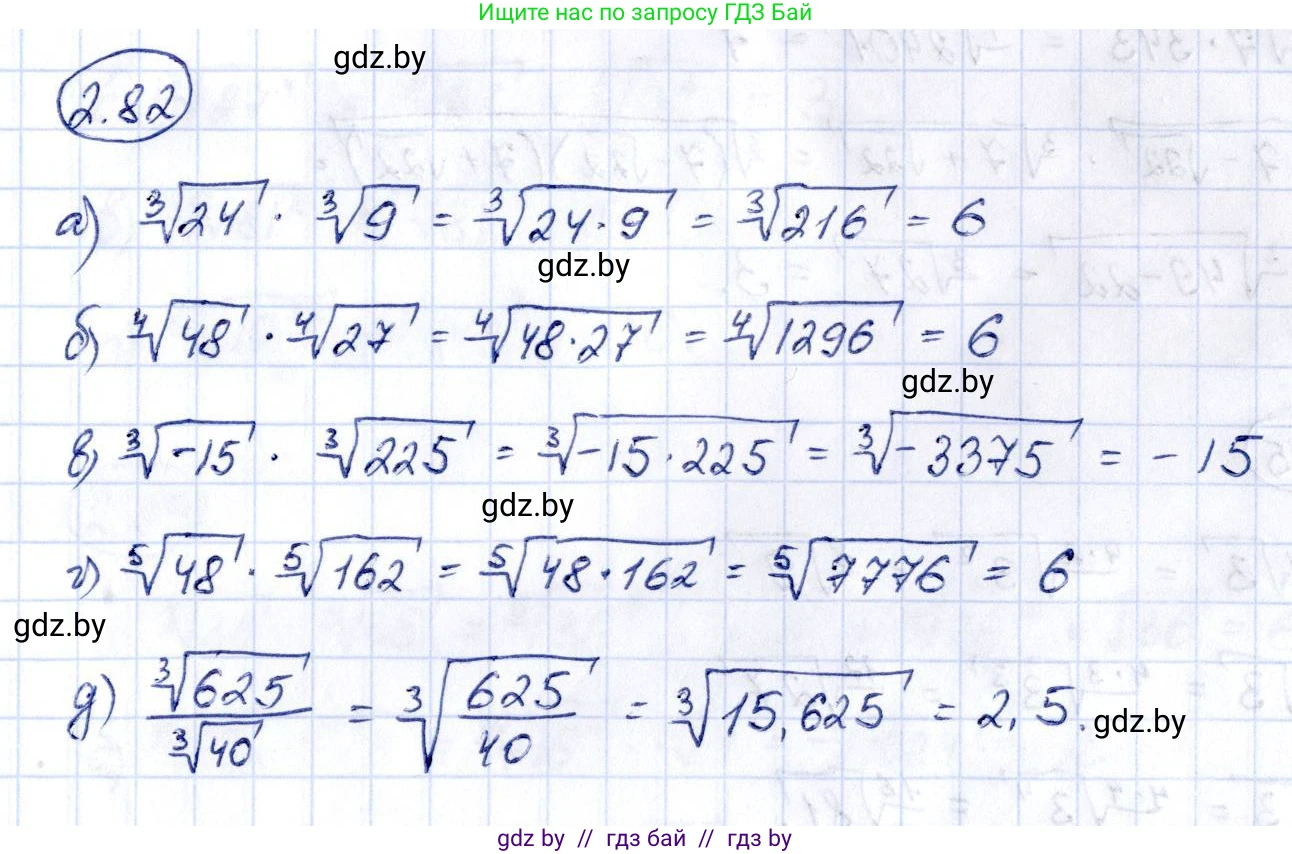 Ищите нас по запросу ГДЗ Бай
gdz.by
2.82
а) ∛24 · ∛9 = ∛(24 · 9) = ∛216 = 6
gdz.by
б) ∜48 · ∜27 = ∜(48 · 27) = ∜1296 = 6
gdz.by
в) ∛(-15) · ∛225 = ∛(-15 · 225) = ∛(-3375) = -15
gdz.by
г) ⁵√48 · ⁵√162 = ⁵√(48 · 162) = ⁵√7776 = 6
gdz.by
д) ∛625 / ∛40 = ∛(625/40) = ∛15,625 = 2,5.
gdz.by
gdz.by // гдз бай // гдз by